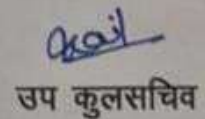 उप कुलसचिव